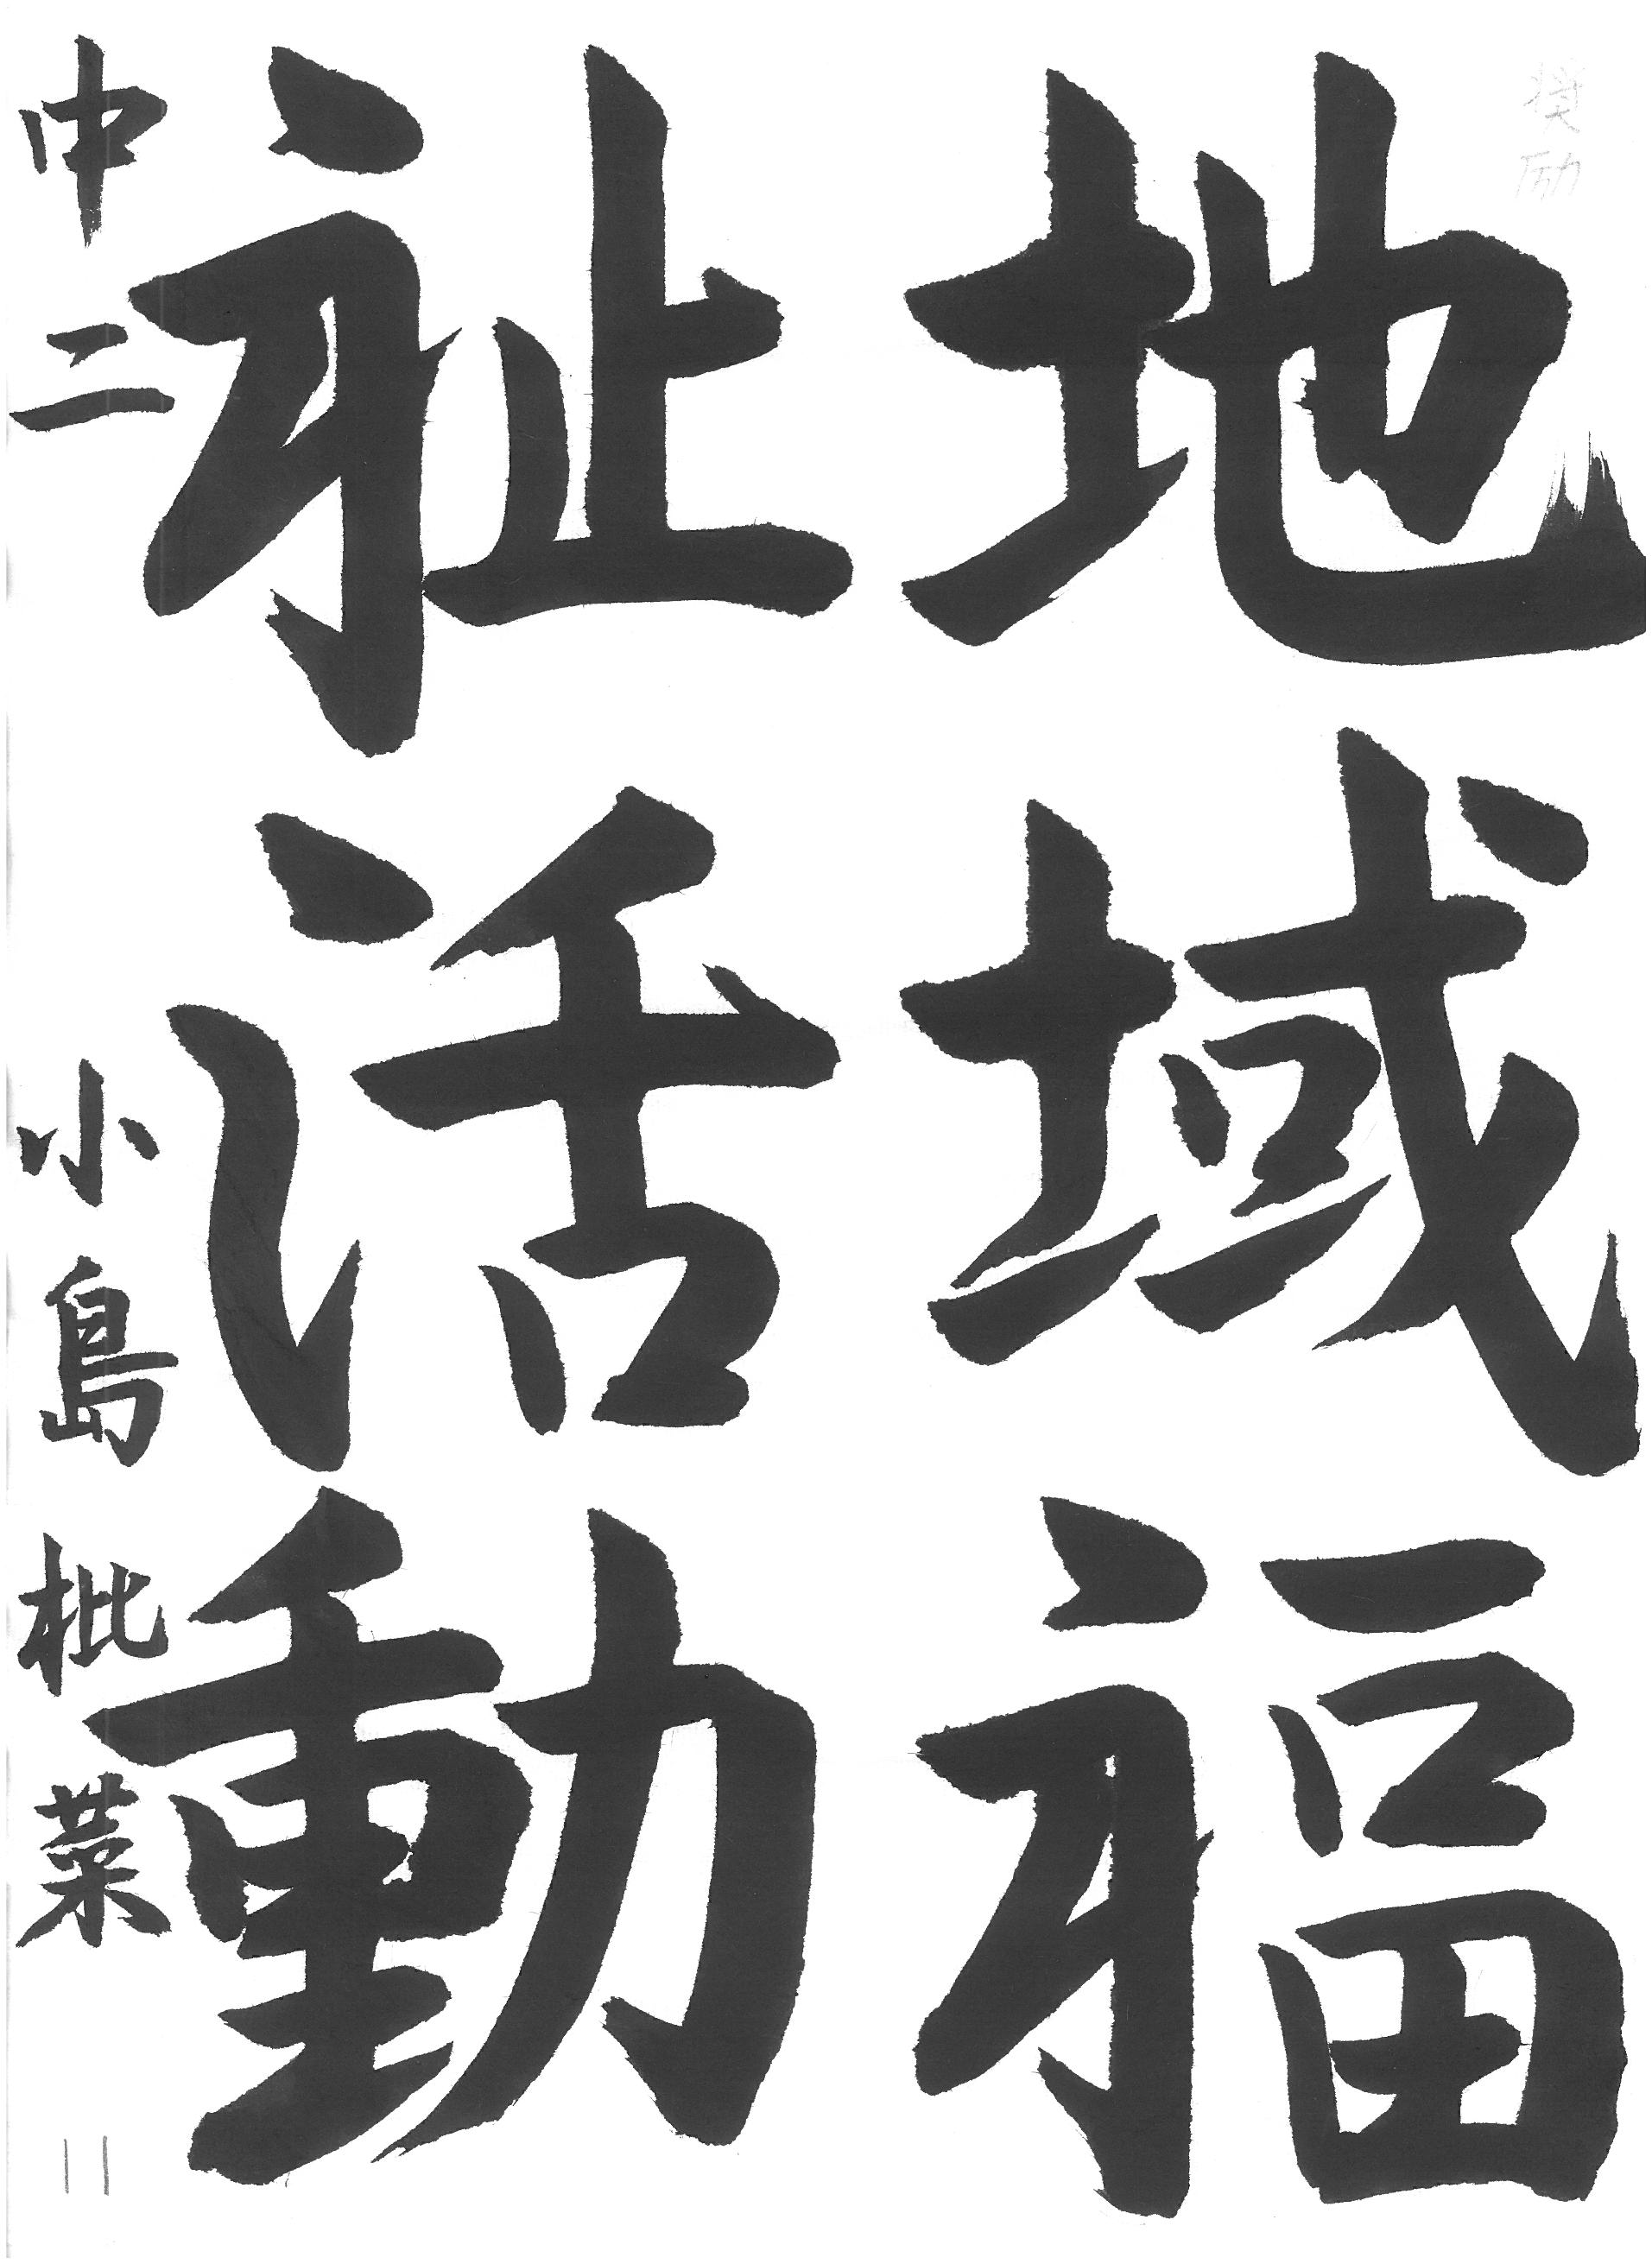 奨励
地域福
祉活動
中二 小島枇菜
11